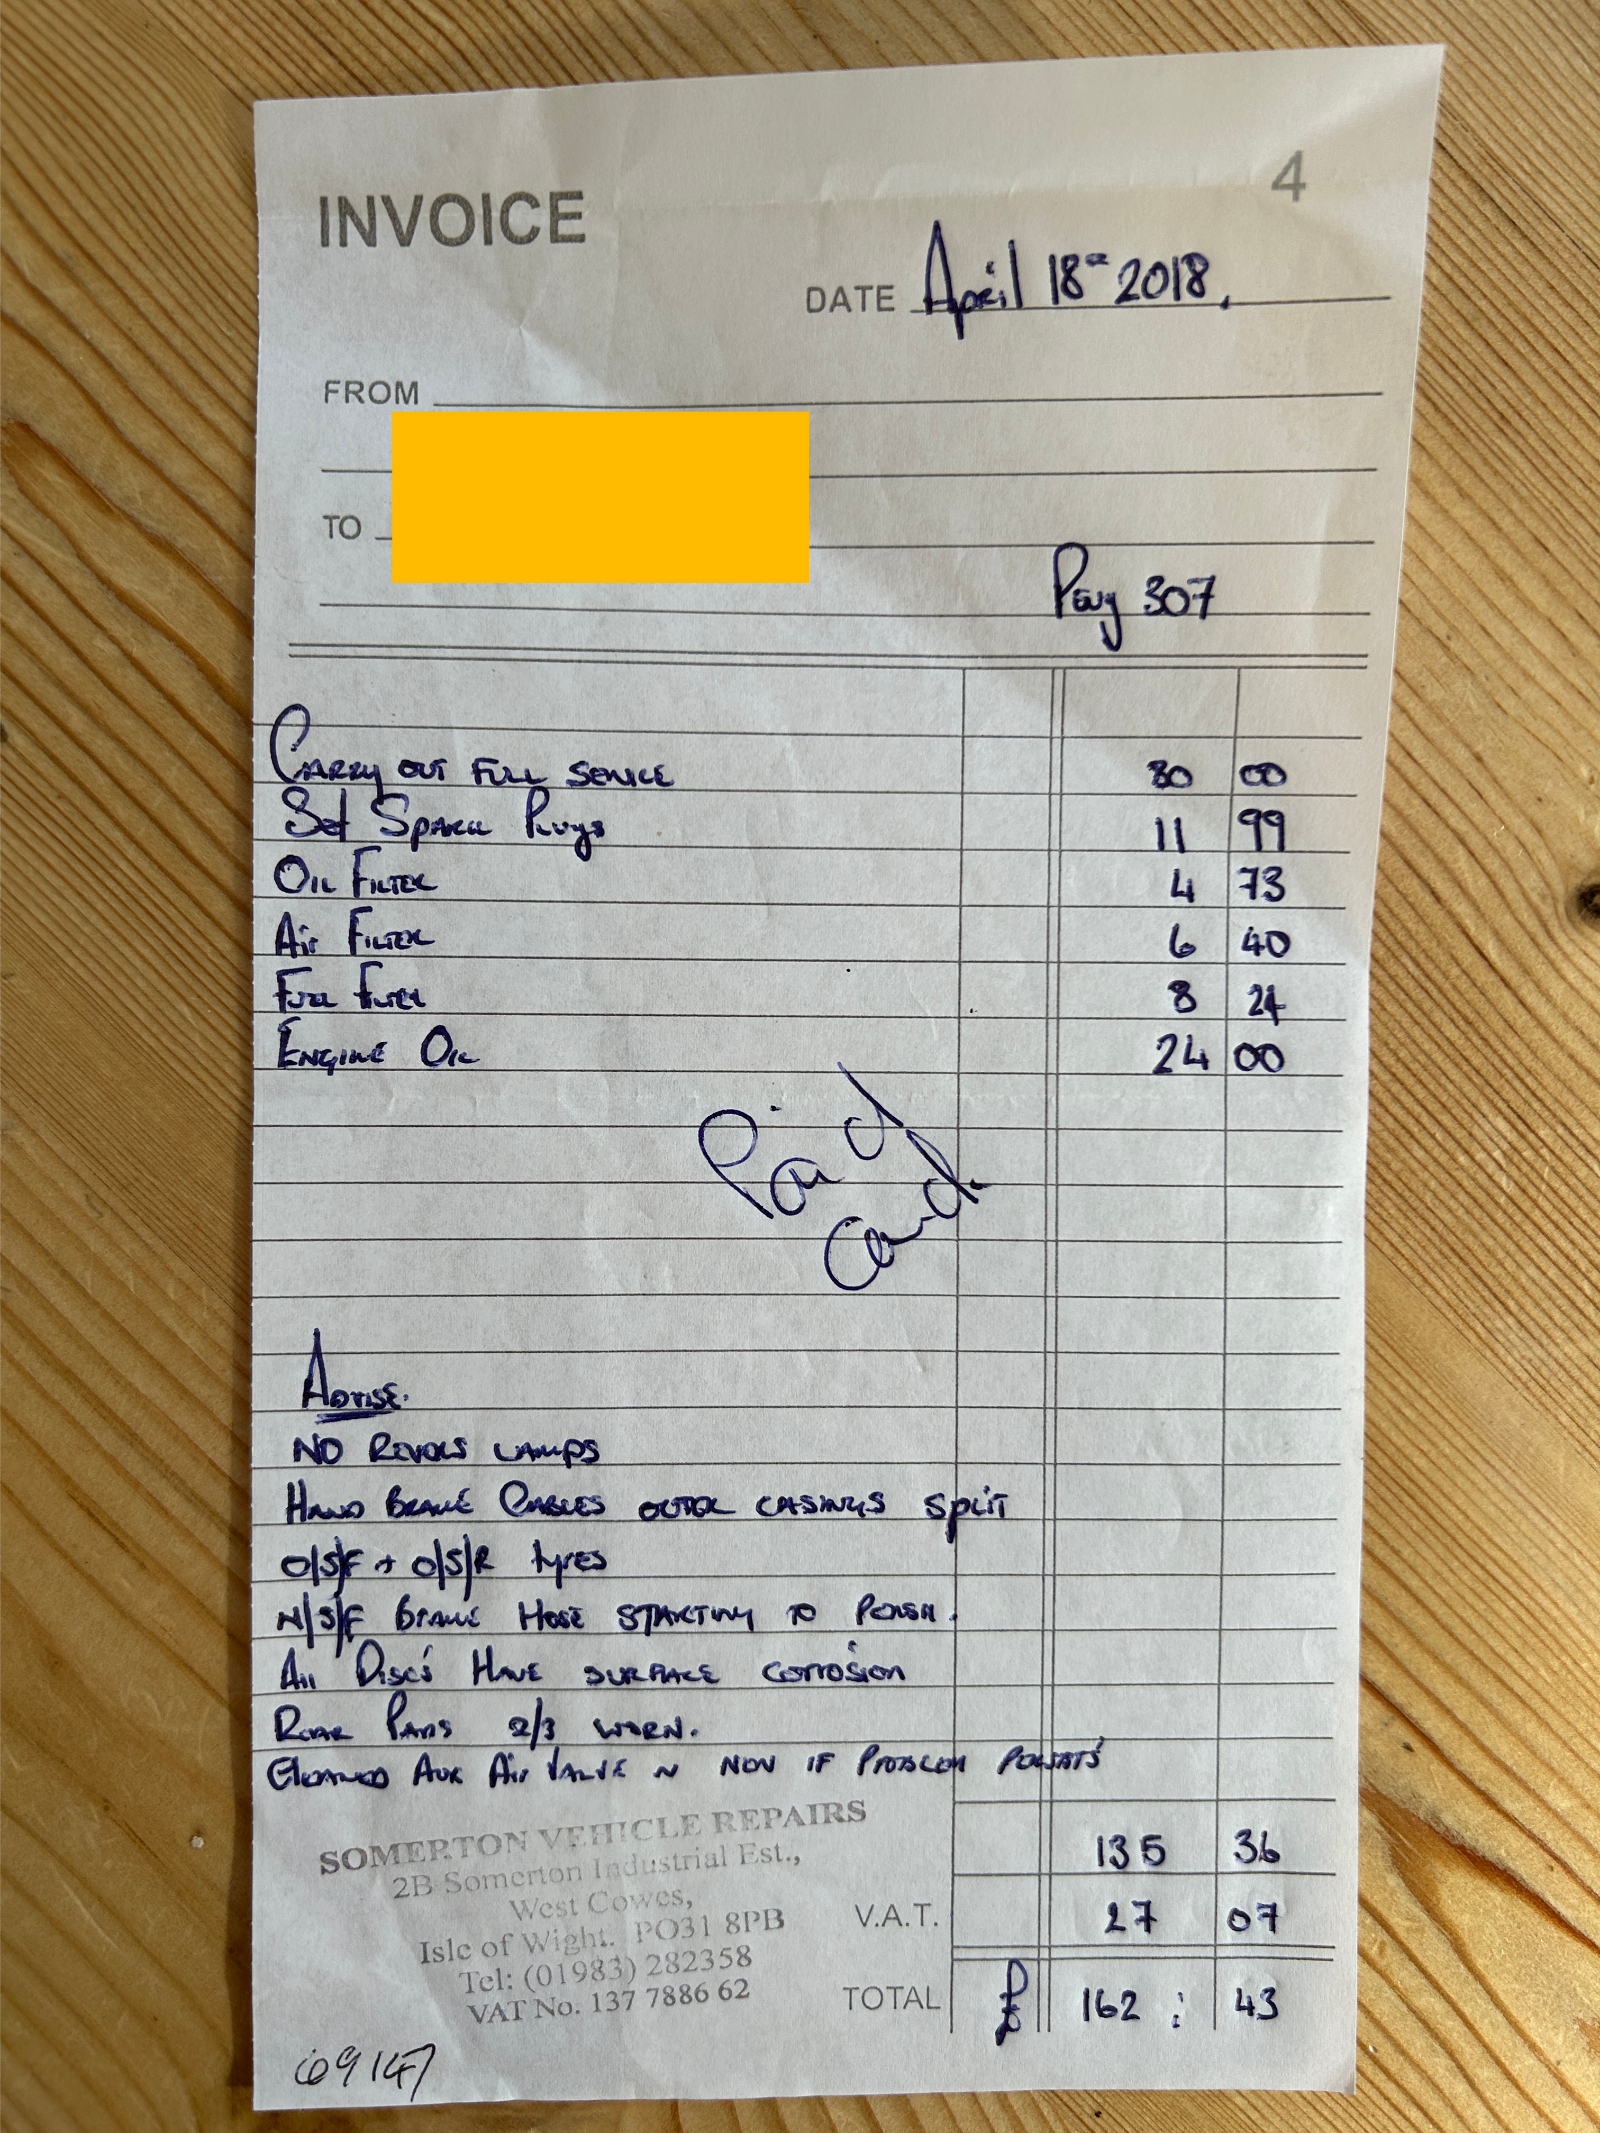 INVOICE
4
DATE April 18th 2018.
FROM
TO
Peug 307
CARRY OUT FULL SERVICE 80 00
Set SPARK Plugs 11 99
OIL FILTER 4 73
Air FILTER 6 40
FUEL FILTER 8 24
ENGINE OIL 24 00
Paid
Card.
ADVISE.
NO REVERS LAMPS
HAND BRAKE CABLES OUTER CASINGS SPLIT
O/S/F + O/S/R tyres
N/S/F BRAKE HOSE STARTING TO PERISH.
All DISC'S HAVE SURFACE CORROSION
REAR PADS 2/3 WORN.
CLEANED AUX Air VALVE NEW IF PROBLEM PERSISTS
135 36
SOMERTON VEHICLE REPAIRS
2B Somerton Industrial Est.,
West Cowes,
Isle of Wight. PO31 8PB
Tel: (01983) 282358
VAT No. 137 7886 62
V.A.T. 27 07
TOTAL £ 162 : 43
69147